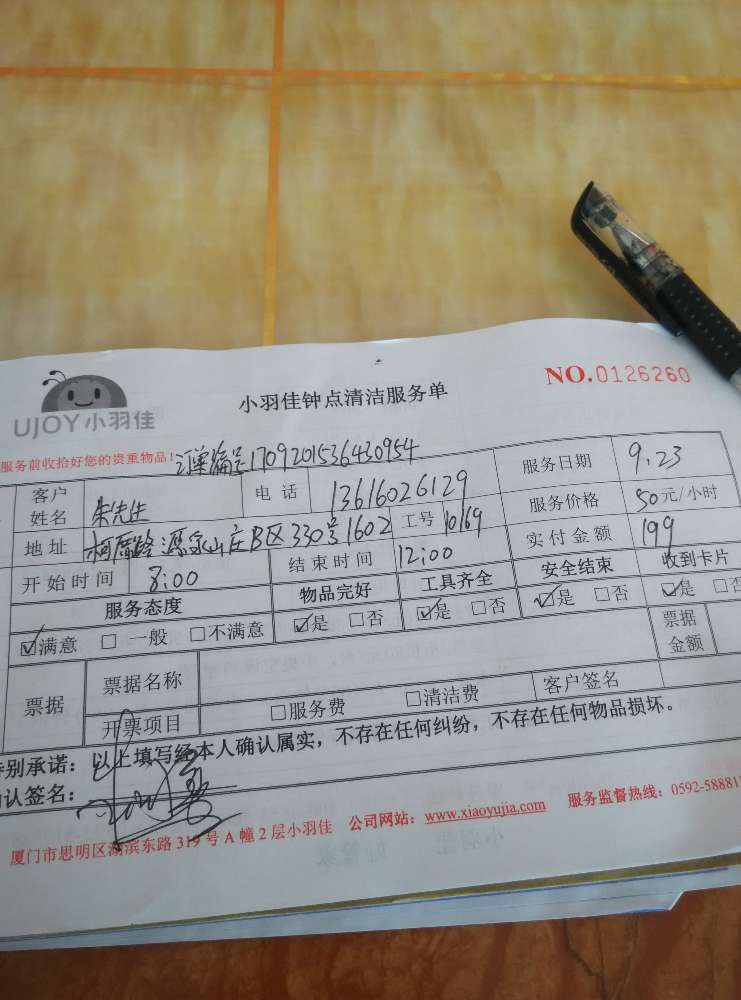 UJOY小羽佳
小羽佳钟点清洁服务单
NO.0126260
服务前收拾好您的贵重物品! 订单编号1709201536430954
客户姓名 朱先生 电话 13616026129 服务日期 9.23
地址 源泉山庄B区330号1602 工号 10169 服务价格 50元/小时
开始时间 8:00 结束时间 12:00 实付金额 199
服务态度 物品完好 工具齐全 安全结束 收到卡片
☑满意 □一般 □不满意 ☑是 □否 ☑是 □否 ☑是 □否 ☑是 □否
票据 票据名称 票据金额
开票项目 □服务费 □清洁费 客户签名
特别承诺：以上填写经本人确认属实，不存在任何纠纷，不存在任何物品损坏。
确认签名：
厦门市思明区湖滨东路319号A幢2层小羽佳 公司网站：www.xiaoyujia.com 服务监督热线：0592-58881